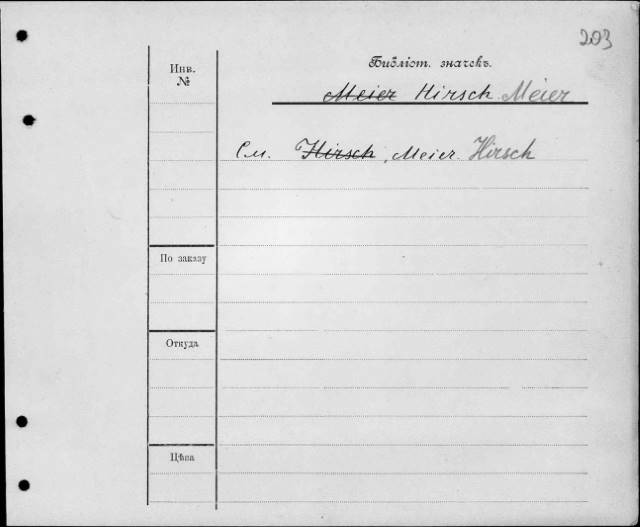 203
Библіот. значекъ.
Инв.
№
Meier Hirsch Meier
См. Hirsch, Meier Hirsch
По заказу
Откуда
Цѣна